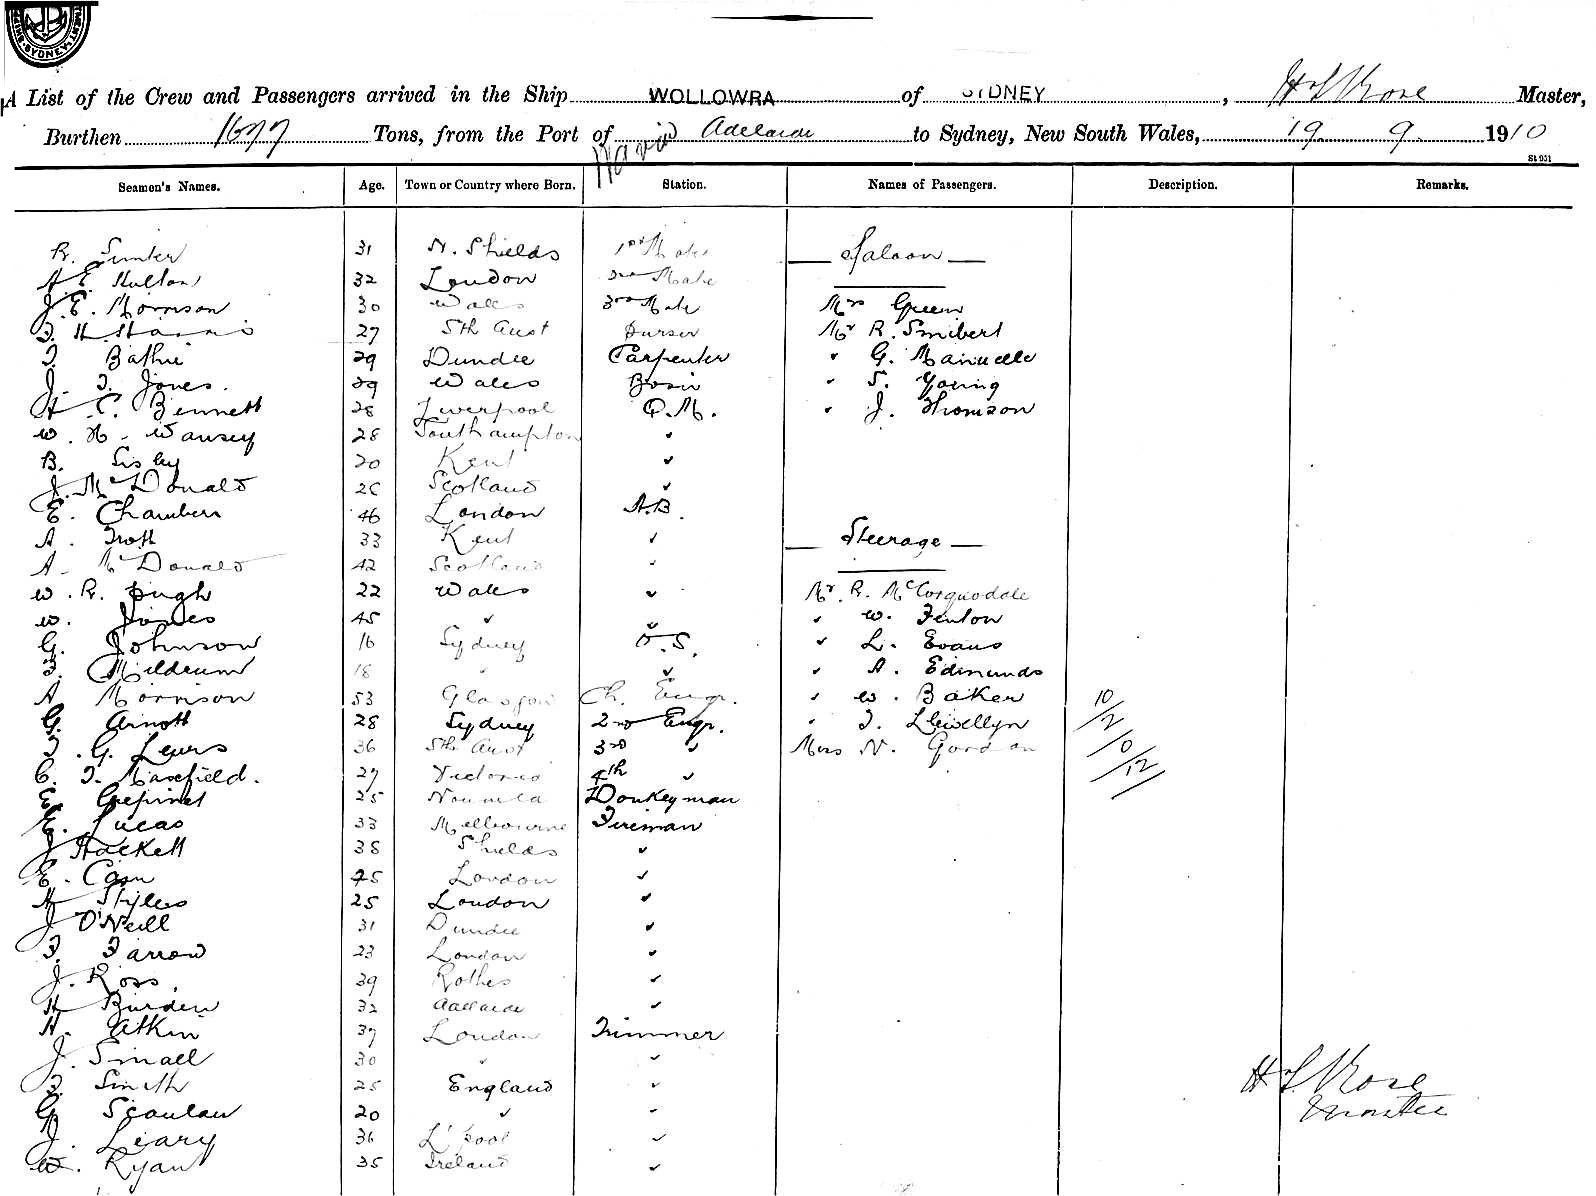 SYDNEY
A List of the Crew and Passengers arrived in the Ship WOLLOWRA of SYDNEY, H L Rose Master,
Burthen 1677 Tons, from the Port of Adelaide to Sydney, New South Wales, 19 9 1910
St 951
Seamen's Names. Age. Town or Country where Born. Station. Names of Passengers. Description. Remarks.
R. Sunter 31 N. Shields 1st Mate — Saloon —
A. E. Hulton 32 London 2nd Mate
J. E. Morrison 30 Wales 3rd Mate Mrs Green
27 Sth Aust Purser Mr R. Smibert
J. Bathie 29 Dundee Carpenter " G. Manuelle
J. T. Jones. 29 Wales Bosin " S. Young
H C. Bennett 28 Liverpool Q.M. " J. Thomson
W. H. Wansey 28 Southampton "
B. Sisley 20 Kent "
J. McDonald 26 Scotland "
E. Chambers 46 London A.B.
A. Trott 33 Kent " — Steerage —
A. McDonald 42 Scotland "
W. R. Pugh 22 Wales " Mr. R. McCorquodale
W. Jones 45 " " " W. Fenton
G. Johnson 16 Sydney O.S. " L. Evans
F. Mildrum 18 " " " A. Edmunds
A Morrison 53 Glasgow Ch. Engr. " W. Baker 10
G. Arnott 28 Sydney 2nd Engr. " T. Llewellyn /2
T. G. Lewis 36 Sth Aust 3rd " Miss N. Gordon /0
C. T. Masefield. 27 Victoria 4th " /12/
25 Noumea Donkeyman
E. Lucas 33 Melbourne Fireman
J Hackett 38 Shields "
E. Cann 45 London "
H Styles 25 London "
J O'Neill 31 Dundee "
F. Farrow 23 London "
J. Ross 39 Rothes "
H Burden 32 Adelaide "
H. Atkin 37 London Trimmer
J. Small 30 " "
F. Smith 25 England " H L Rose
G Scanlan 20 " " Master
J. Leary 36 L'pool "
W. Ryan 35 Ireland "